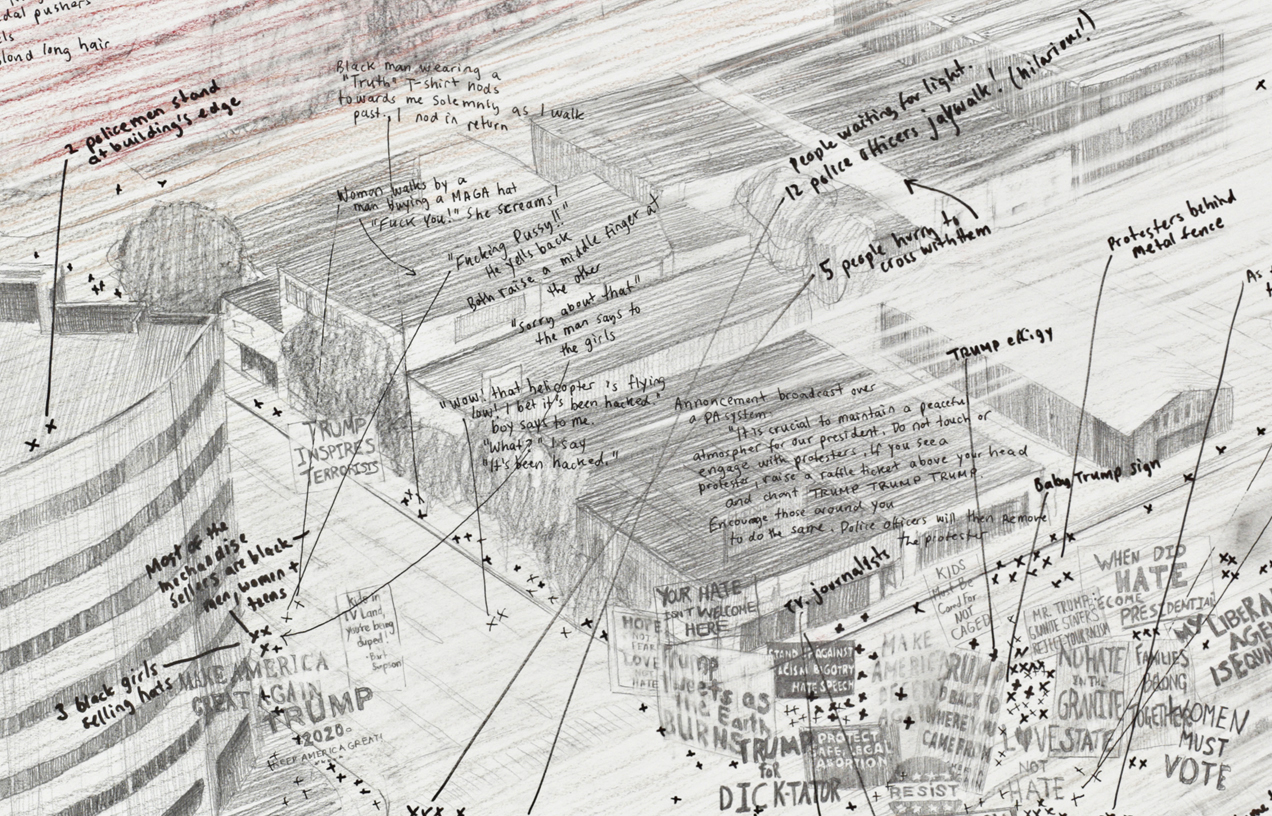 dal pushers
blond long hair
2 policemen stand
at building's edge
Black man wearing a
"Truth" T-shirt nods
towards me solemnly as I walk
past, I nod in return
Woman walks by a
man buying a MAGA hat
"FUCK YOU!" She screams!
"Fucking Pussy!!"
He yells back
Both raise a middle finger at
the other
"Sorry about that"
the man says to
the girls
"Wow! that helicopter is flying
low! I bet it's been hacked."
boy says to me.
"What?" I say
"It's been hacked."
People waiting for light.
12 police officers jaywalk! (hilarious!)
5 people hurry to
cross with them
Protesters behind
metal fence
As
TRUMP effigy
Baby Trump sign
Annoncement broadcast over
a PA system.
"It is crucial to maintain a peaceful
atmospher for our president. Do not touch or
engage with protesters. If you see a
protester, raise a raffle ticket above your head
and chant TRUMP TRUMP TRUMP.
Encourage those around you
to do the same. Police officers will then remove
the protester
TRUMP
INSPIRES
TERRORISIS
Most of the
mechandise
sellers are black
men, women +
teens
3 black girls
selling hats
MAKE AMERICA
GREAT AGAIN
TRUMP
2020
KEEP AMERICA GREAT!
Kids in
TV Land,
You're being
duped!
-Bart
Simpson
T.V. journalists
YOUR HATE
ISN'T WELCOME
HERE
HOPE
NOT
FEAR
LOVE
NOT
HATE
Trump
Tweets as
the Earth
BURNS
TRUMP
FOR
DICK-TATOR
STAND AGAINST
RACISM BIGOTRY
HATE SPEECH
PROTECT
SAFE, LEGAL
ABORTION
MAKE
AMERICA
TRUMP
GO BACK TO
WHERE YOU
CAME FROM
RESIST
KIDS
Must Be
Cared For
NOT
CAGED
MR. TRUMP:
GRANITE STATERS
REJECT YOUR
WHEN DID
HATE
BECOME
PRESIDENTIAL
NO HATE
IN THE
GRANITE
STATE
LOVE
NOT
HATE
FAMILIES
BELONG
TOGETHER
MY LIBERAL
AGENDA
IS EQU
WOMEN
MUST
VOTE